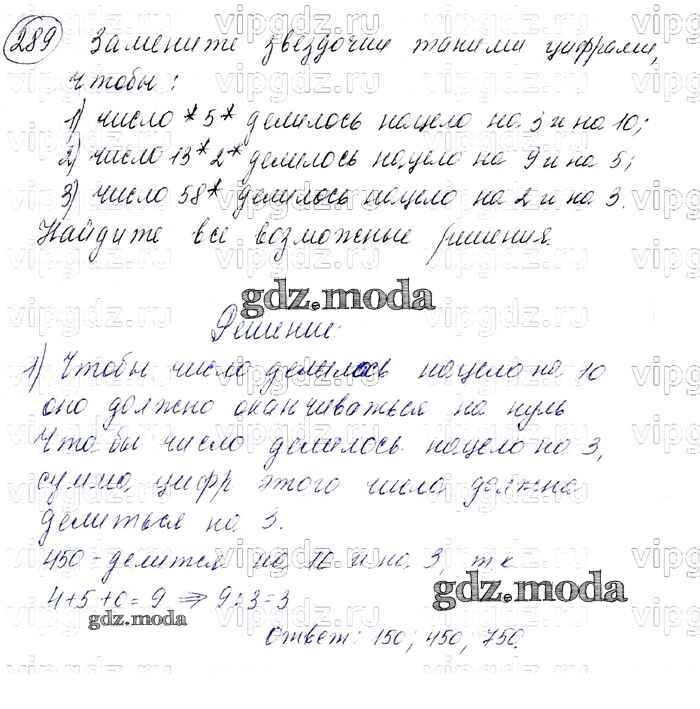 289 Замените звездочки такими цифрами,
чтобы:
1) число *5* делилось нацело на 3 и на 10;
2) число 13*2* делилось нацело на 9 и на 5;
3) число 58* делилось нацело на 2 и на 3.
Найдите все возможные решения.
gdz.moda
Решение:
1) Чтобы число делилось нацело на 10
оно должно оканчиваться на нуль
Чтобы число делилось нацело на 3,
сумма цифр этого числа должна
делиться на 3.
450 - делится на 10 и на 3, т к
gdz.moda
4+5+0=9 ⇒ 9:3=3
gdz.moda
Ответ: 150; 450; 750.
vipgdz.ru